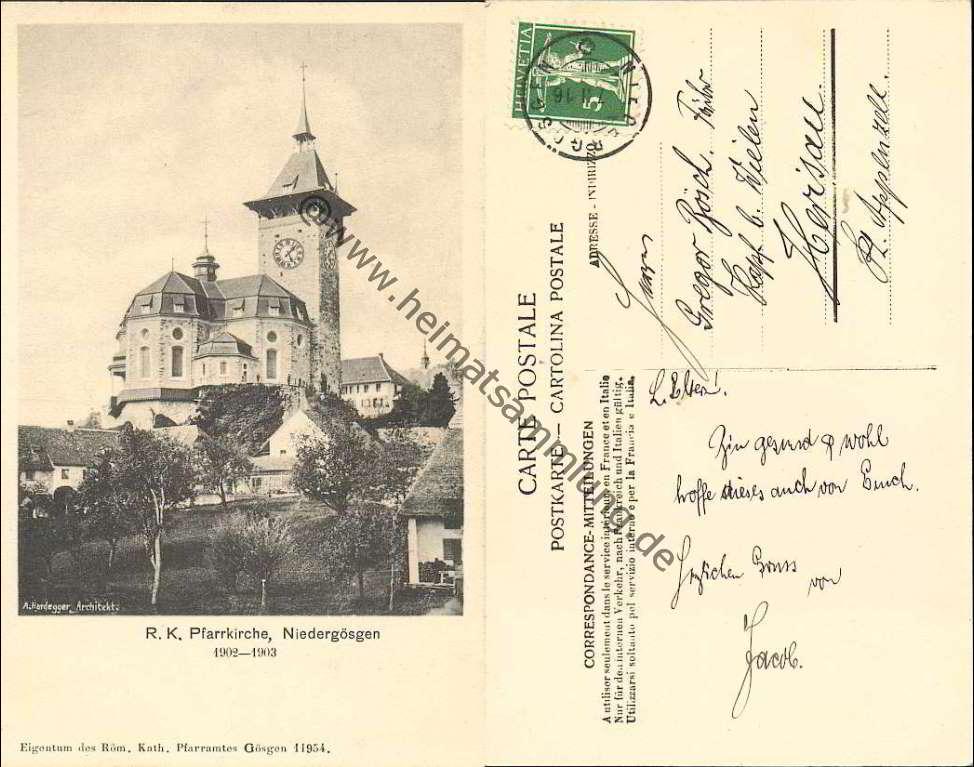 A. Hardegger, Architekt.
R. K. Pfarrkirche, Niedergösgen
1902—1903
Eigentum des Röm. Kath. Pfarramtes Gösgen 11954.
HELVETIA
5
CARTE POSTALE
POSTKARTE — CARTOLINA POSTALE
CORRESPONDANCE-MITTEILUNGEN
ADRESSE - INDIRIZZO
A utiliser seulement dans le service interne, en France et en Italie
Nur für den internen Verkehr, nach Frankreich und Italien gültig.
Utilizzarsi soltanto pel servizio interno e per la Francia e Italia.
Gregor Bösch.
Herisau
Kt. Appenzell.
L. Eltern!
Bin gesund & wohl
hoffe dieses auch von Euch.
Herzlichen Gruss
von
Jacob.
@www.heimatsammlung.de